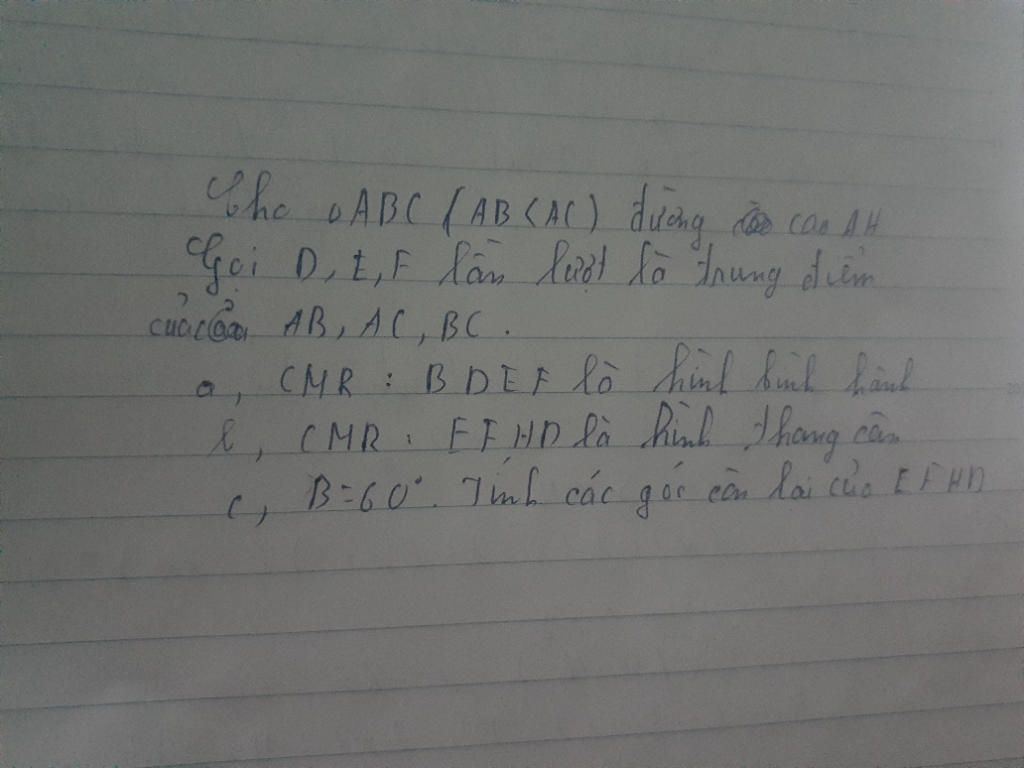 Cho △ABC (AB<AC) đường cao AH
Gọi D, E, F lần lượt là trung điểm
của AB, AC, BC.
a, CMR : BDEF là hình bình hành
b, CMR : EFHD là hình thang cân
c, B=60°. Tính các góc còn lại của EFHD